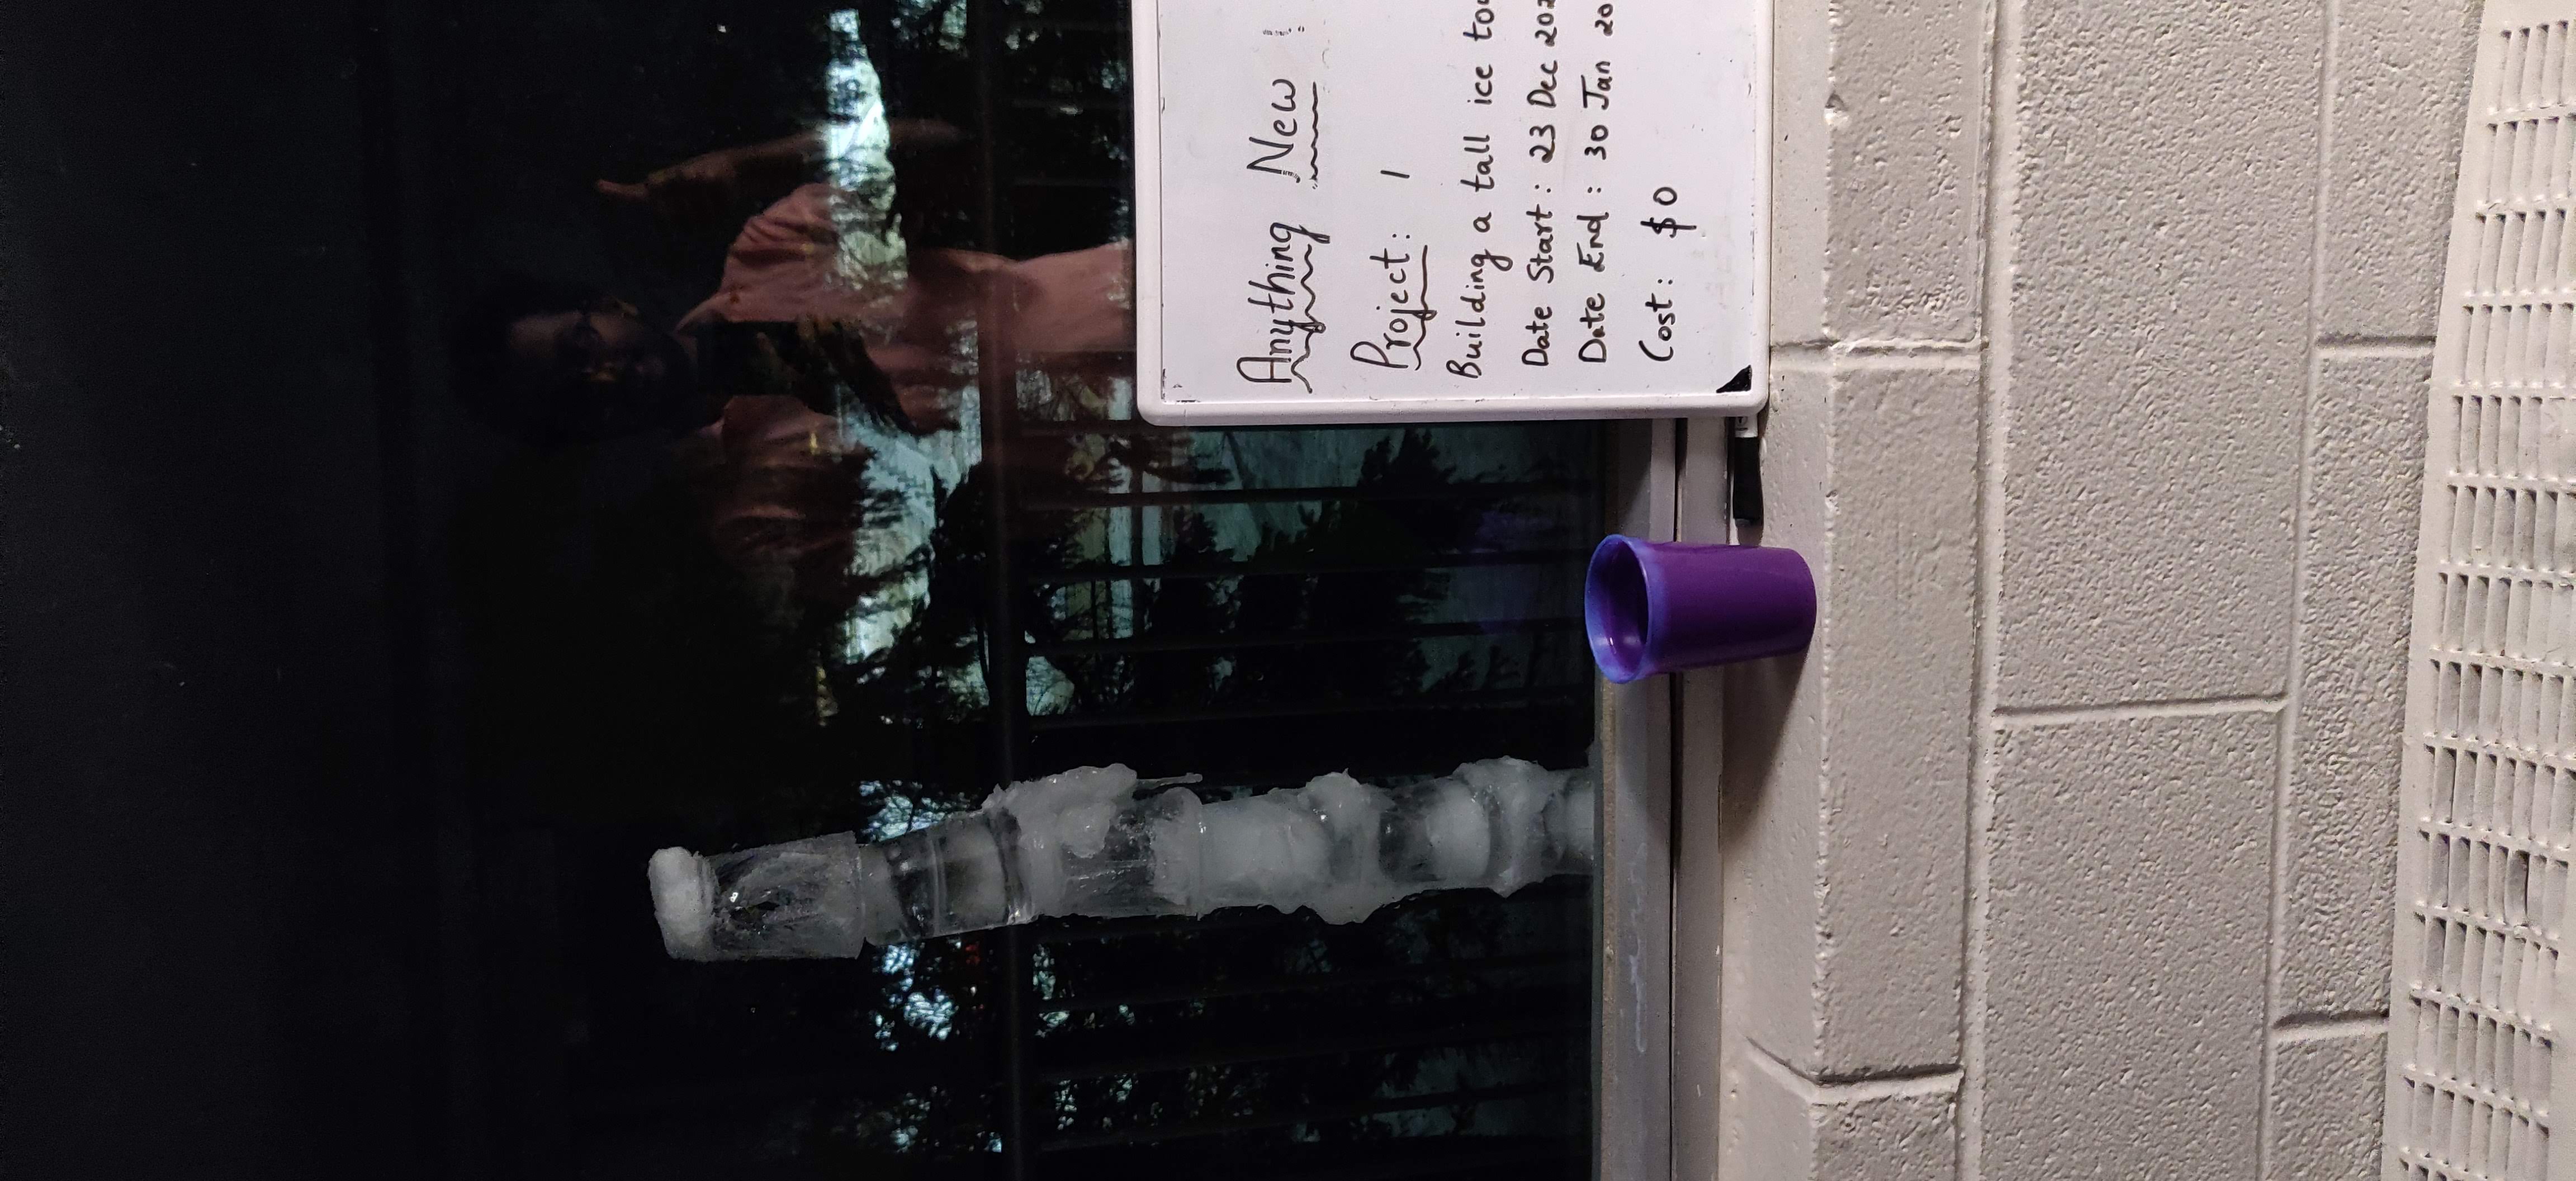 Anything New !
Project: 1
Building a tall ice to
Date Start: 23 Dec 202
Date End: 30 Jan 20
Cost: $0